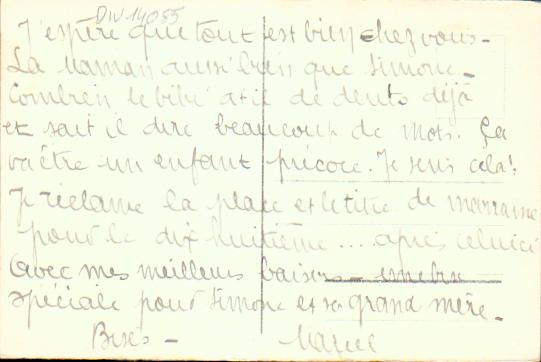 DIV14055
J'espère que tout est bien chez vous -
La maman aussi bien que Simone -
Combien le bébé a t il de dents déjà
et sait il dire beaucoup de mots. Ça
va être un enfant précoce. Je sens cela !
Je réclame la place et le titre de marraine
pour le dix huitième ... après celui ci
Avec mes meilleurs baisers -
spéciale pour Simone et sa grand mère -
Bises -